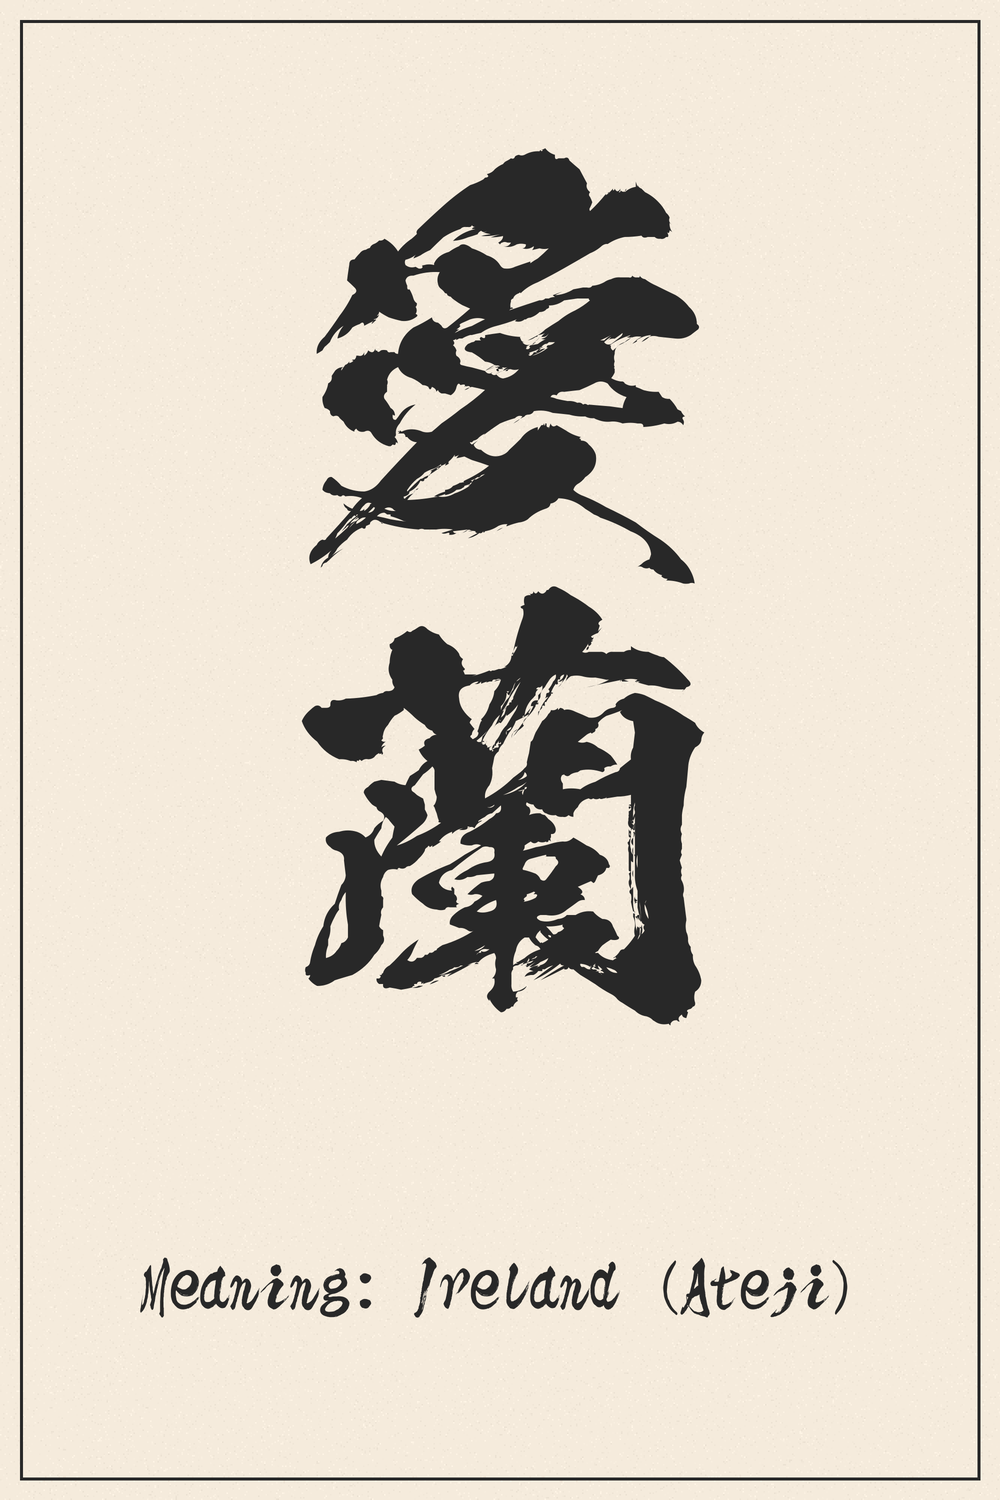 愛蘭
Meaning: Ireland (Ateji)